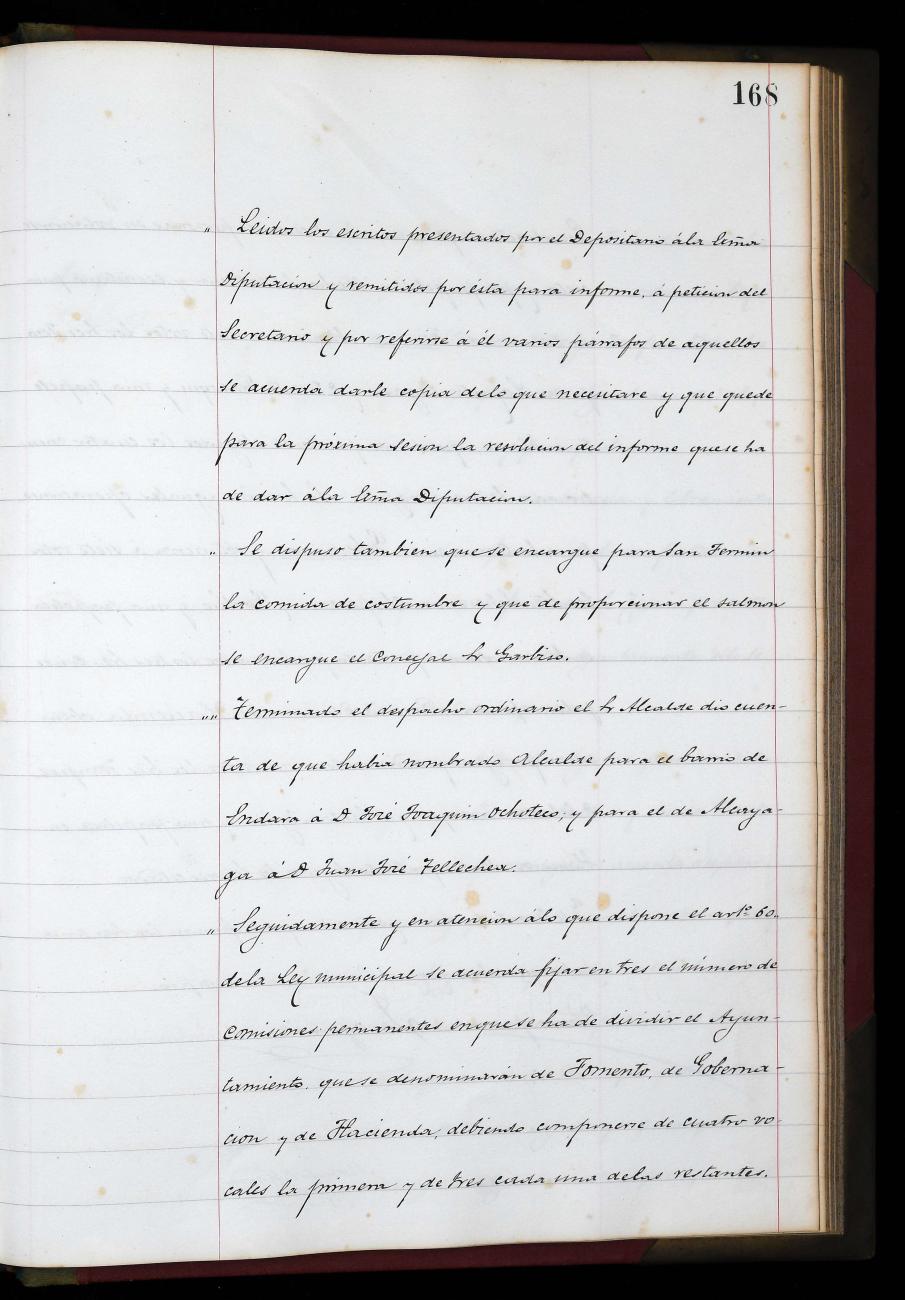 168
" Leidos los escritos presentados por el Depositario á la Excma
Diputacion y remitidos por ésta para informe, á peticion del
Secretario y por referirse á él varios párrafos de aquellos
se acuerda darle copia de lo que necesitare y que quede
para la próxima sesion la resolucion del informe que se ha
de dar á la Excma Diputacion.
" Se dispuso tambien que se encargue para San Fermin
la comida de costumbre y que de proporcionar el salmon
se encargue el Concejal Sr Garbiso.
"" Terminado el despacho ordinario el Sr Alcalde dio cuen-
ta de que habia nombrado Alcalde para el barrio de
Endara á D José Joaquin Ochoteco; y para el de Alcaya-
ga á D Juan José Tellechea.
" Seguidamente y en atencion á lo que dispone el artº 60.
de la Ley municipal se acuerda fijar en tres el número de
comisiones permanentes en que se ha de dividir el Ayun-
tamiento que se denominarán de Fomento, de Goberna-
cion y de Hacienda, debiendo componerse de cuatro vo-
cales la primera y de tres cada una de las restantes.